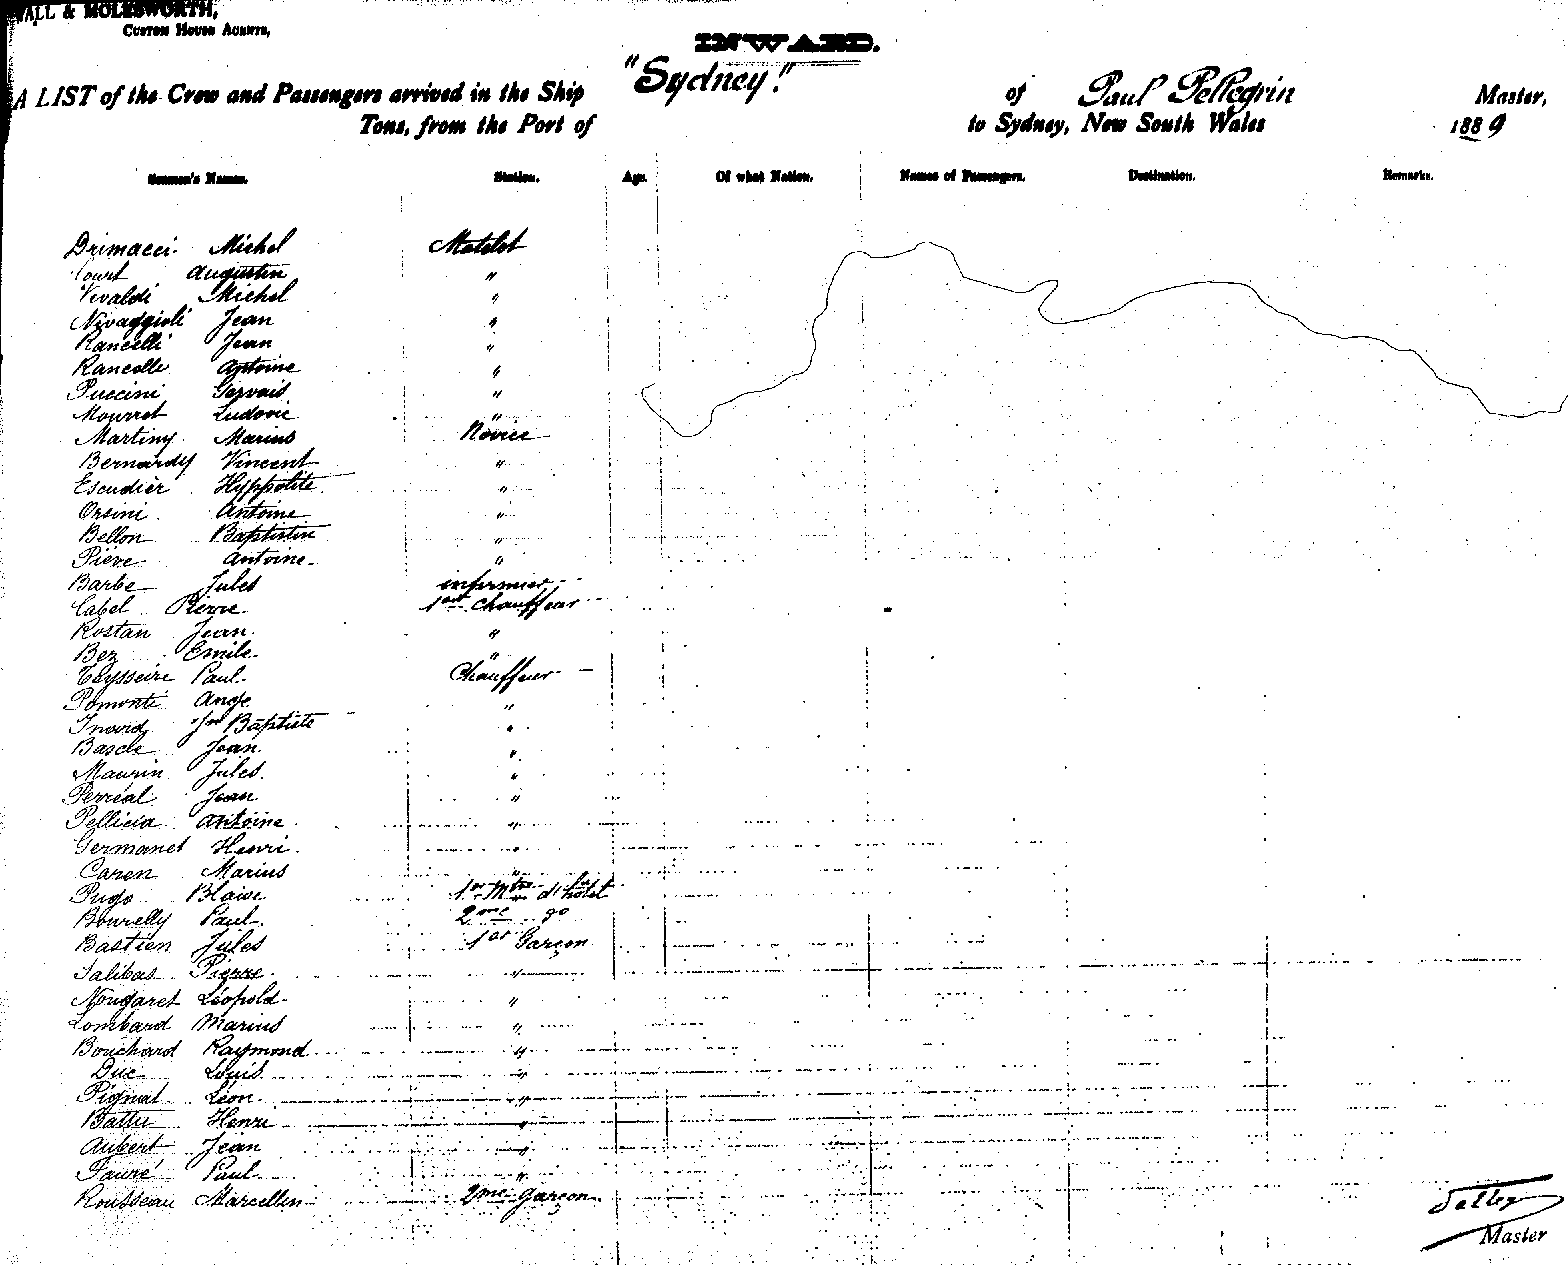 WALL & MOLESWORTH,
CUSTOM HOUSE AGENTS,
INWARD.
A LIST of the Crew and Passengers arrived in the Ship "Sydney" of Paul Pellegrin Master,
Tons, from the Port of to Sydney, New South Wales 1889
Seamen's Names. Station. Age. Of what Nation. Names of Passengers. Destination. Remarks.
Drimacci Michel Matelot
Court Augustin "
Vivaldi Michel "
Nivaggioli Jean "
Rancelli Jean "
Rancelle Antoine "
Puccini Gervais "
Mourret Ludovic "
Martiny Marius Novice
Bernardy Vincent "
Escudier Hyppolite "
Orsini Antoine "
Bellon Baptistin "
Piève Antoine "
Barbe Jules infirmier
Cabel Pierre 1er Chauffeur
Rostan Jean "
Bez Emile "
Teysseire Paul Chauffeur
Pomonti Ange "
Jn Baptiste "
Bascle Jean "
Maurin Jules "
Perréal Jean "
Pellicia Antoine "
Germanet Henri "
Caren Marius "
Pugo Blaise 1er Mtre d'hotel
Bourelly Paul 2me do
Bastien Jules 1er Garçon
Salibas Pierre "
Nougaret Léopold "
Lombard Marius "
Bouchard Raymond "
Duc Louis "
Pignat Léon "
Battu Henri "
Aubert Jean "
Fauré Paul "
Rousseau Marcellin 2me garçon
Master